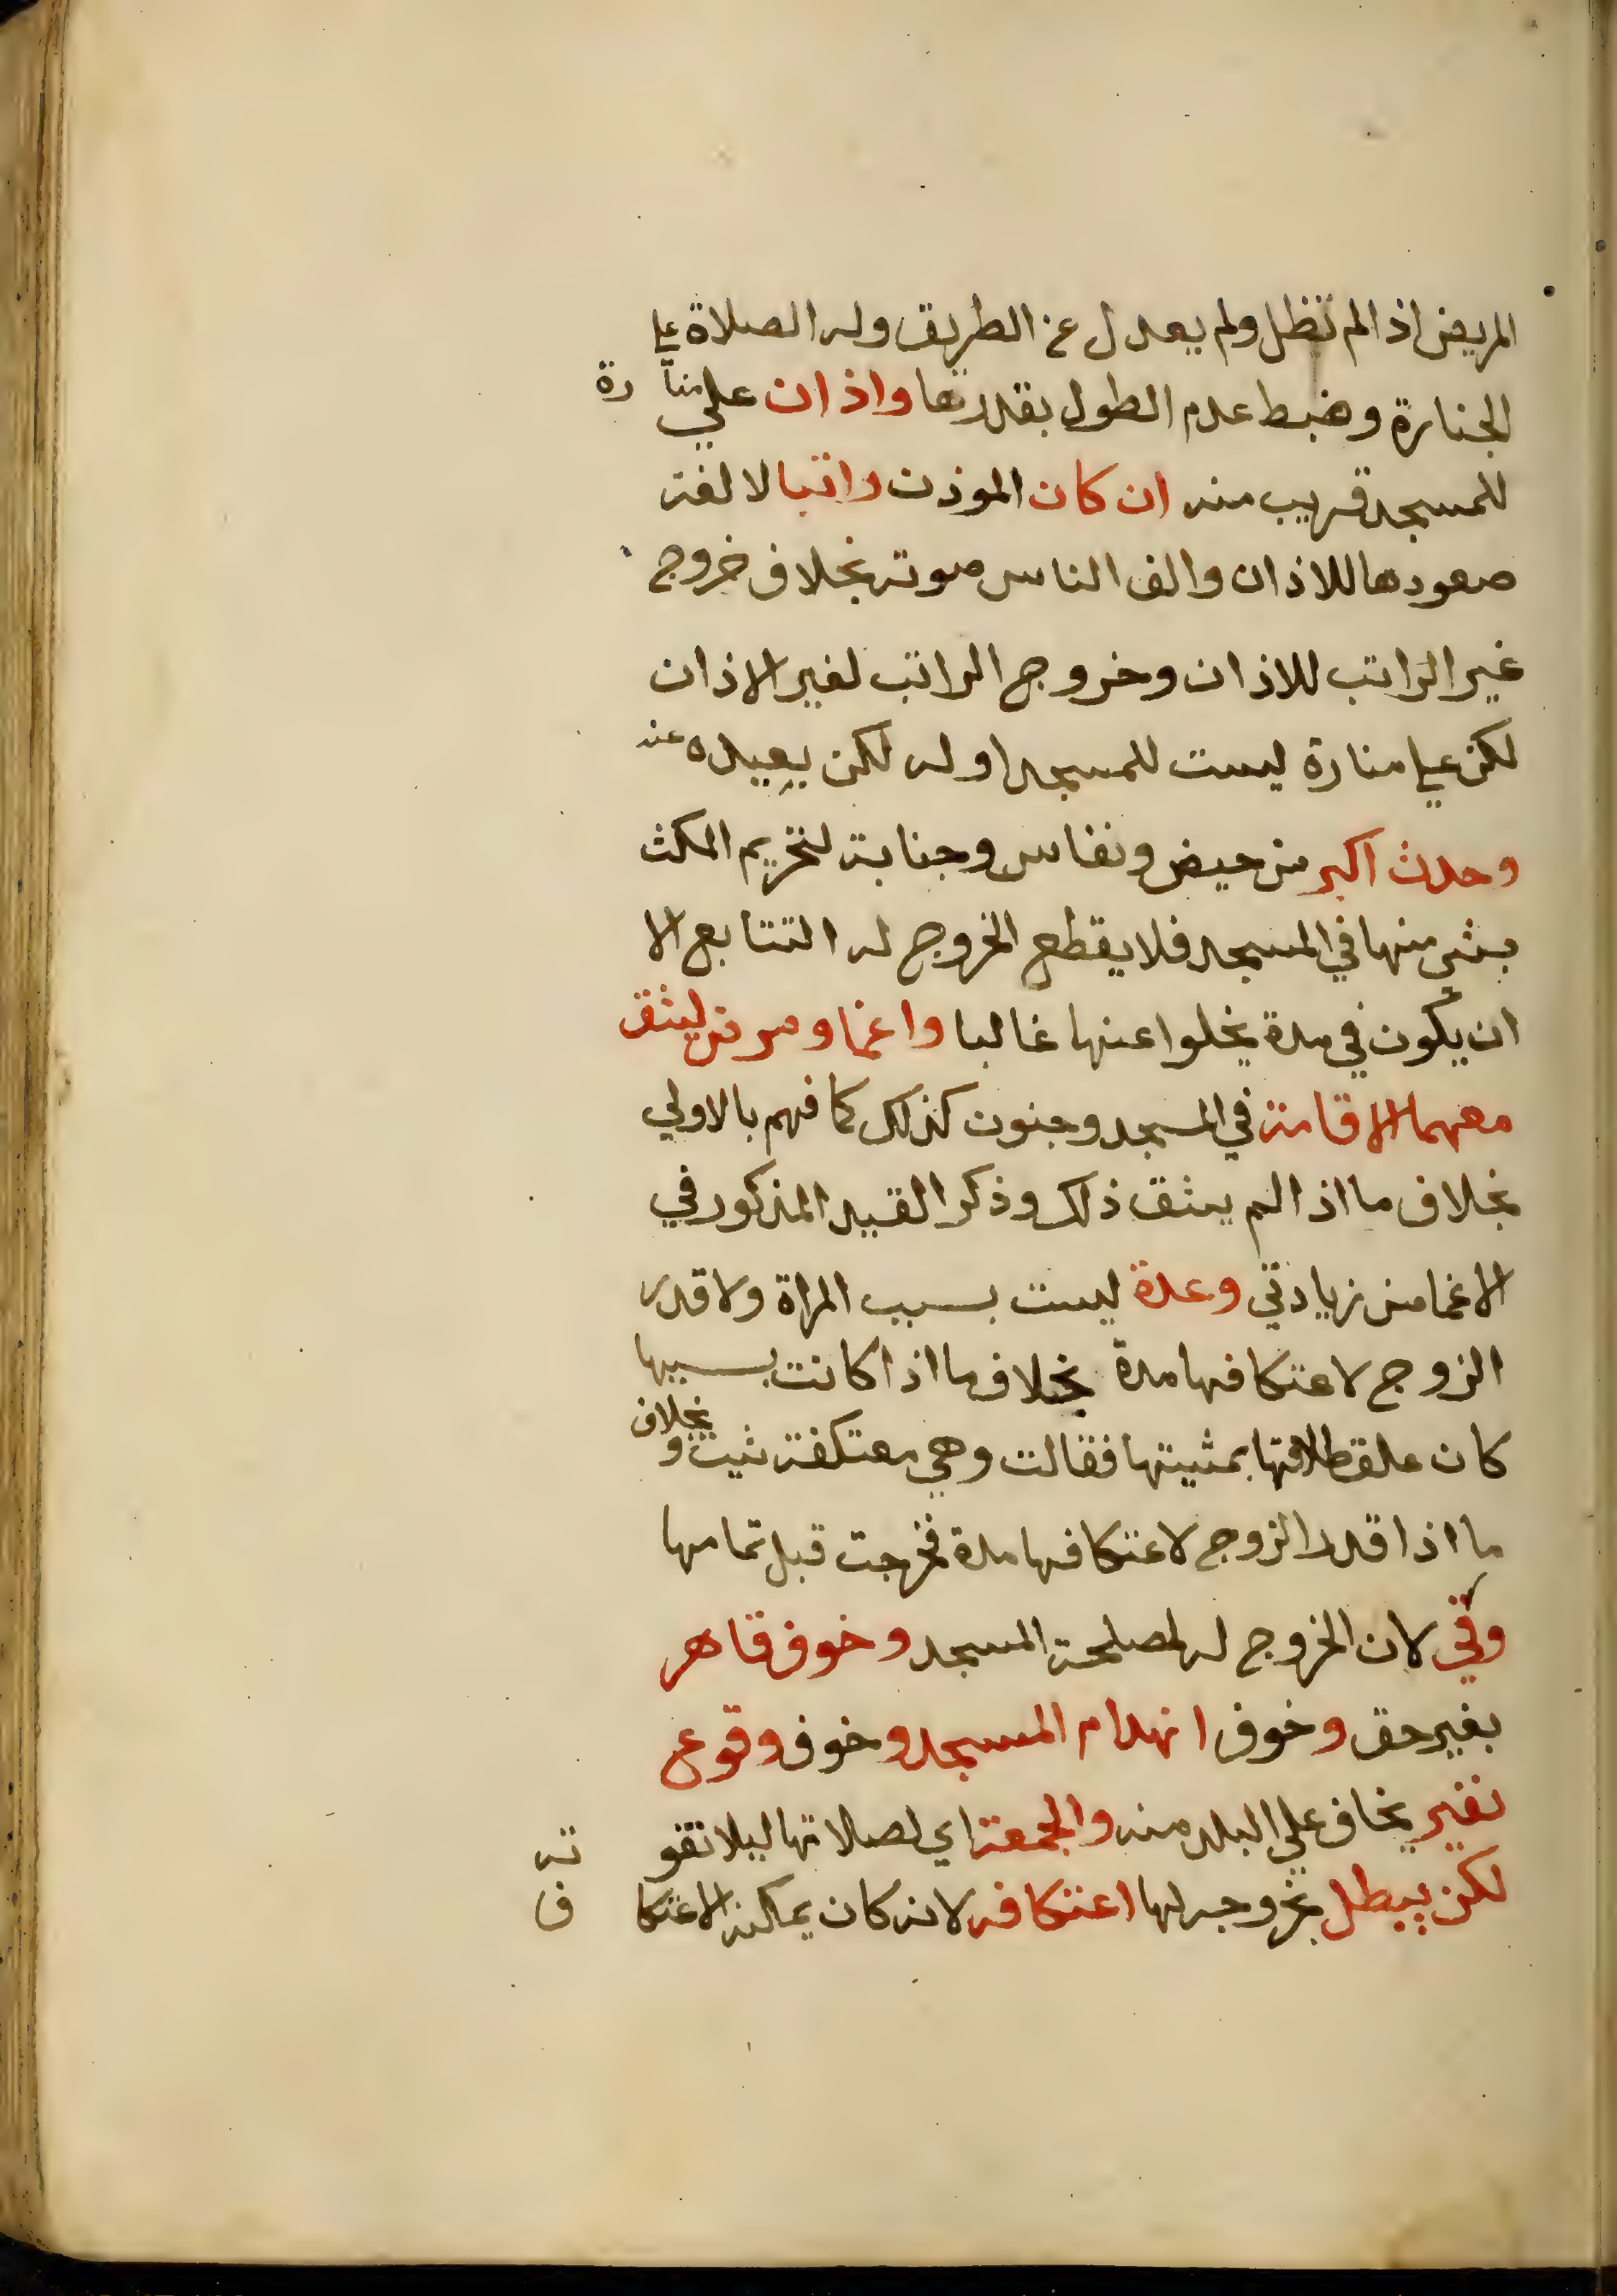 المريض اذا لم تطل ولم يعدل عن الطريق وله الصلاة علي
الجنازة وضبط عدم الطول بقدرها واذان علي منارة
للمسجد قريب منه ان كان الموذن راتبا لالفة
صعودها للاذان والف الناس صوته بخلاف خروج
غير الراتب للاذان وخروج الراتب لغير الاذان
لكن علي منارة ليست للمسجد او له لكن بعيده عنه
وحدث اكبر من حيض ونفاس وجنابة لتحريم المكث
بشي منها في المسجد فلا يقطع الخروج له التتابع الا
ان يكون في مدة يخلوا عنها غالبا واغما ومرض ليشق
معهما الاقامة في المسجد وجنون كذلك كما فهم بالاولي
بخلاف ما اذا لم يشق ذلك وذكر القيد المذكور في
الاغما من زيادتي وعدة ليست بسبب المراة ولا قدر
الزوج لاعتكافها مدة بخلاف ما اذا كانت بسببها
كان علق طلاقها بمشيتها فقالت وهي معتكفة شيت وبخلاف
ما اذا قدر الزوج لاعتكافها مدة فخرجت قبل تمامها
وقي لان الخروج له لمصلحة المسجد وخوف قاهر
بغير حق وخوف انهدام المسجد وخوف وقوع
نفير يخاف علي البلد منه والجمعة اي لصلاتها ليلا تفوته
لكن يبطل بخروجه لها اعتكافه لانه كان يمكنه الاعتكاف